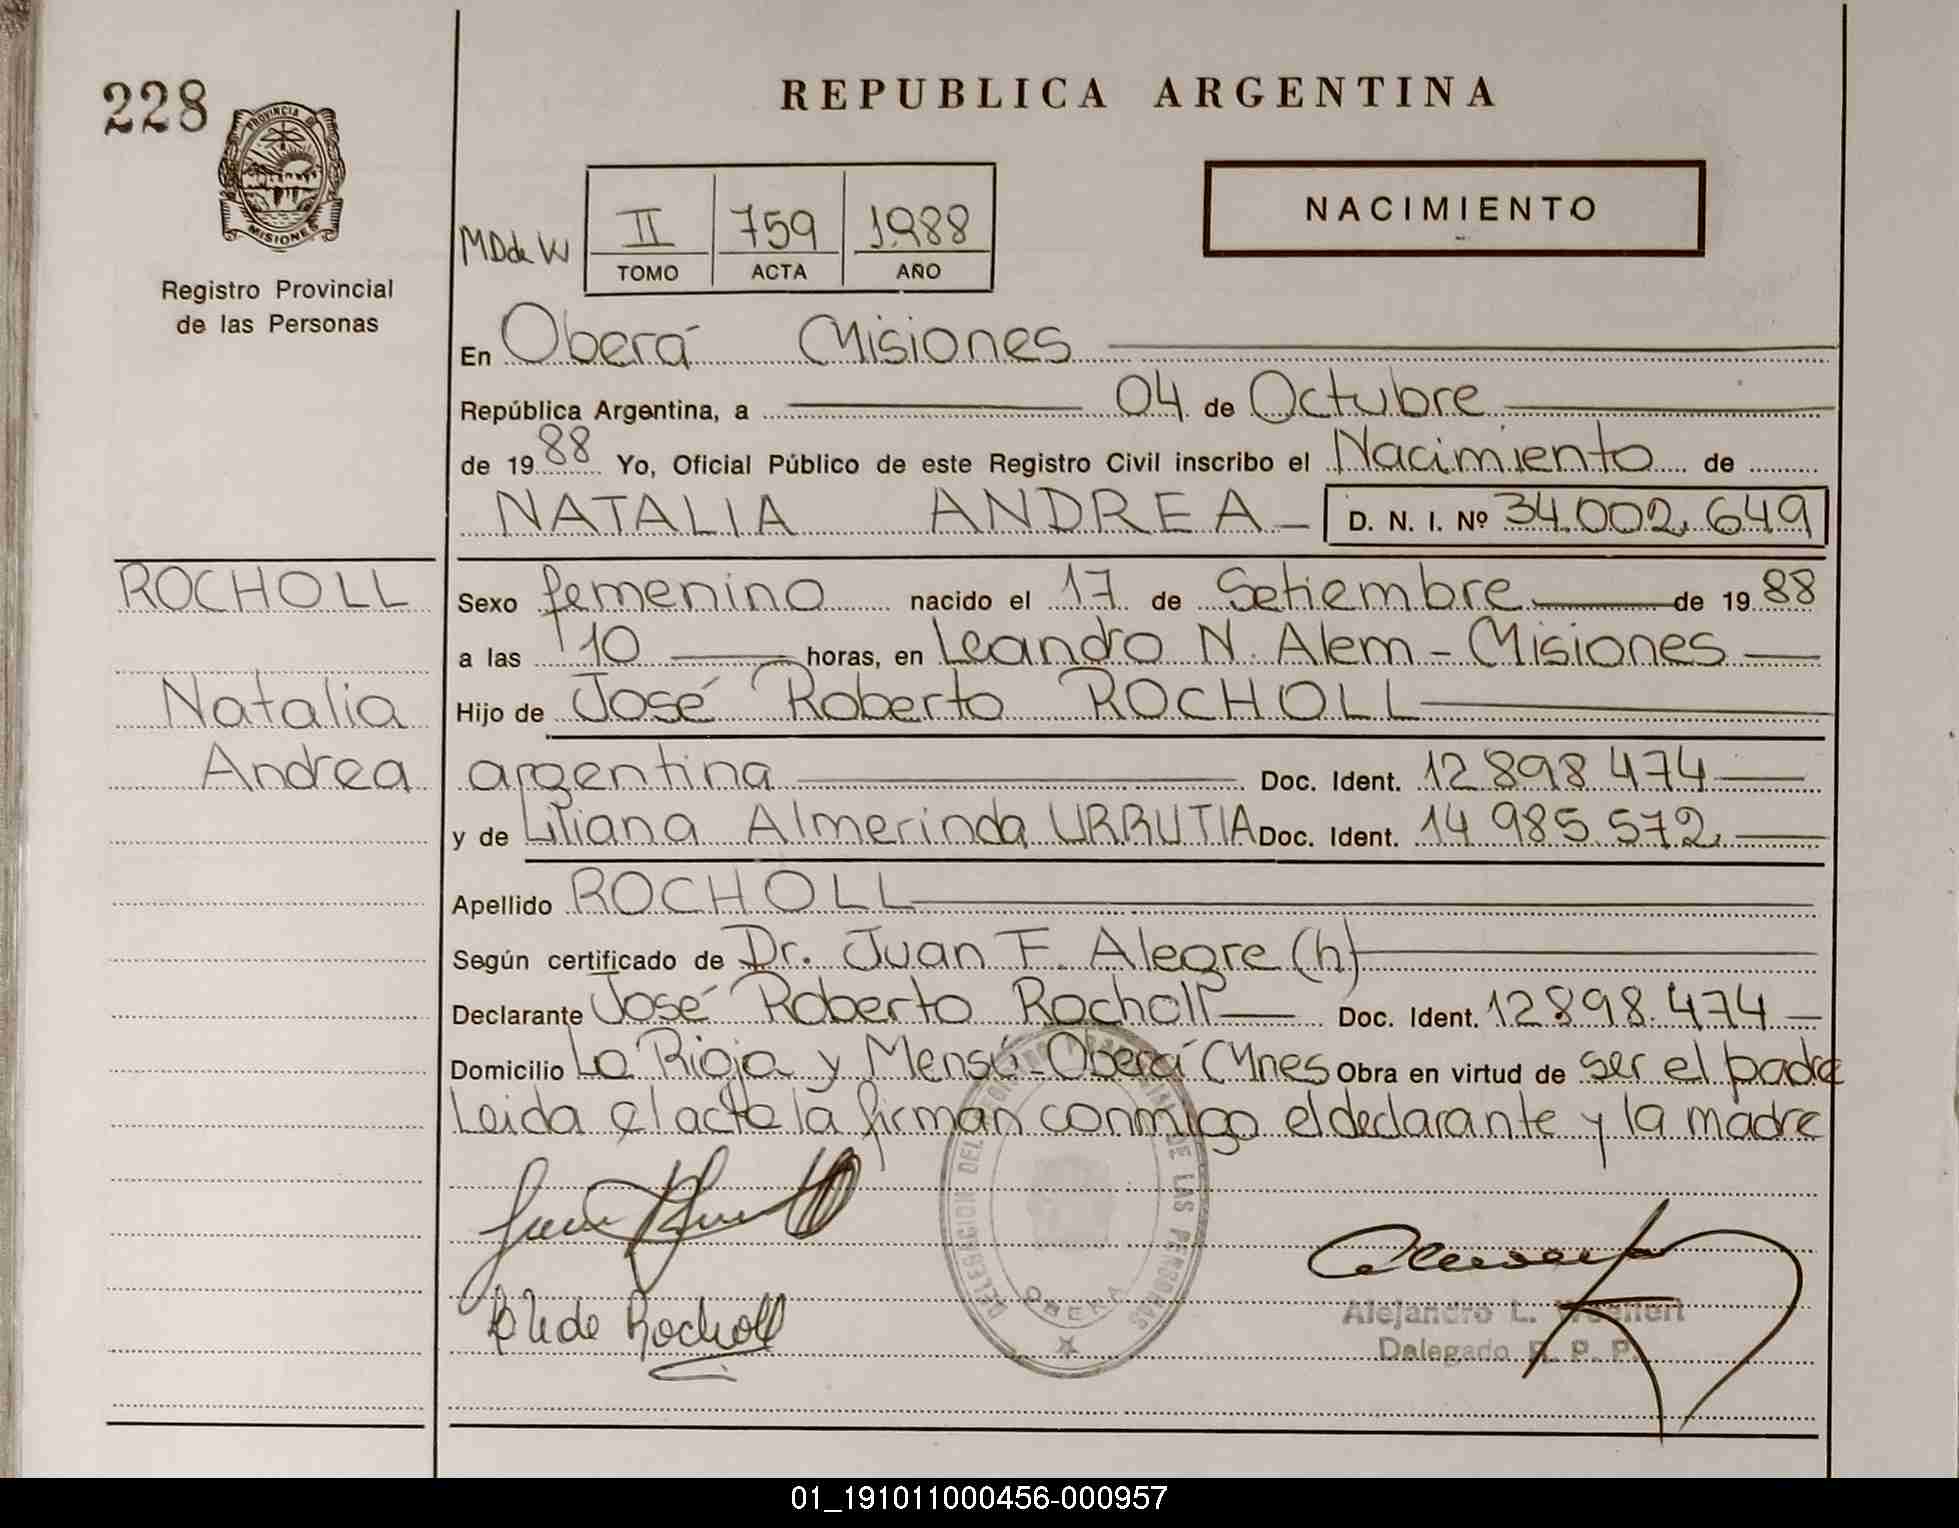 228
REPUBLICA ARGENTINA
PROVINCIA DE
MISIONES
Registro Provincial
de las Personas
MDdeW
II 759 1988
TOMO ACTA AÑO
NACIMIENTO
En Oberá Misiones
República Argentina, a 04 de Octubre
de 1988 Yo, Oficial Público de este Registro Civil inscribo el Nacimiento de
NATALIA ANDREA D. N. I. Nº 34.002.649
ROCHOLL
Natalia
Andrea
Sexo femenino nacido el 17 de Setiembre de 1988
a las 10 horas, en Leandro N. Alem - Misiones
Hijo de José Roberto ROCHOLL
argentina Doc. Ident. 12 898 474
y de Liliana Almerinda URRUTIA Doc. Ident. 14 985 572
Apellido ROCHOLL
Según certificado de Dr. Juan F. Alegre (h)
Declarante José Roberto Rocholl Doc. Ident. 12898.474
Domicilio La Rioja y Mensú - Oberá Mnes Obra en virtud de ser el padre
Leida el acta la firman conmigo el declarante y la madre
DELEGACION DEL REGISTRO PROVINCIAL DE LAS PERSONAS
OBERA
Rocholl
Alejandro L.
Delegado R. P. P.
01_191011000456-000957